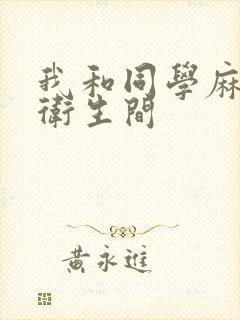 我和同學麻
衛生間
黃永進